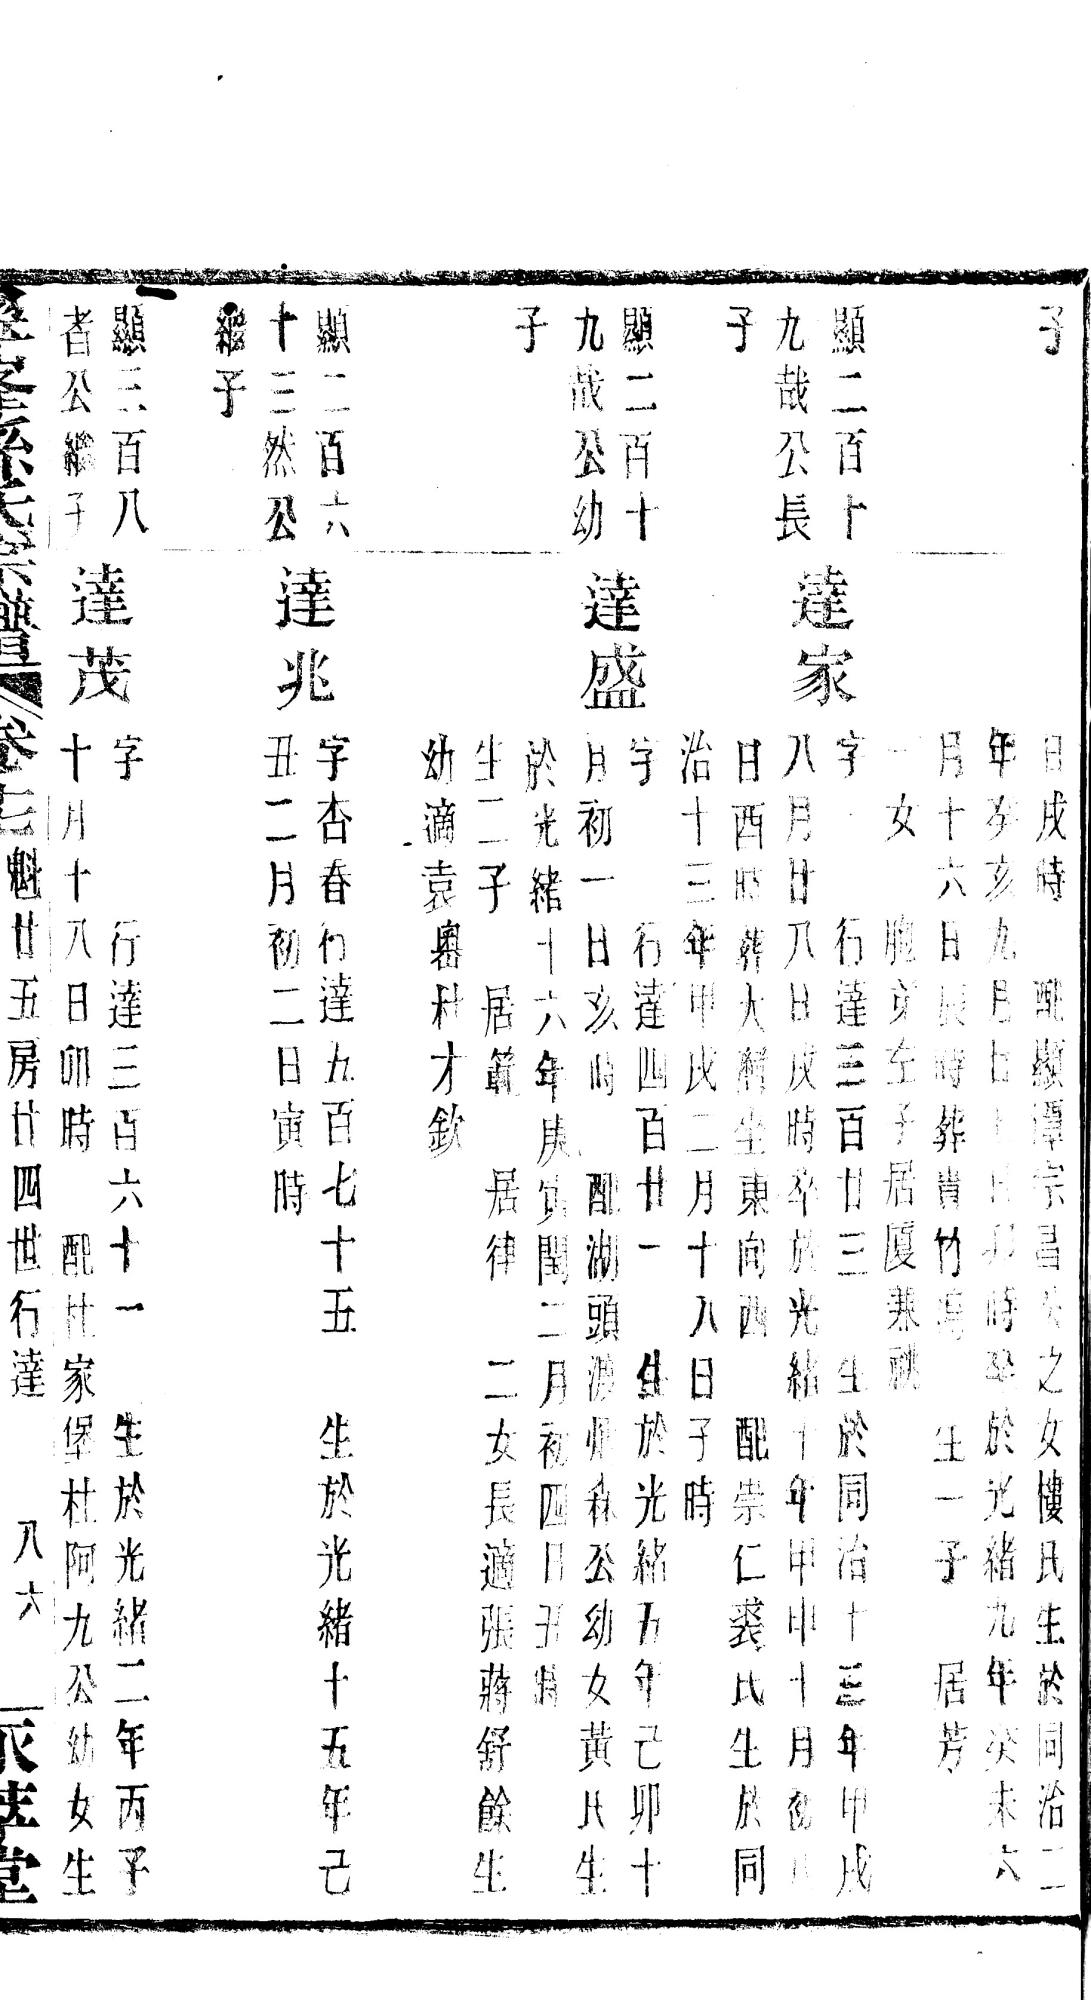 子
日戌時　配顯潭宗昌公之女樓氏生於同治二
年癸亥九月廿　日卯時卒於光緒九年癸未六
月十六日辰時葬貴竹塢　生一子　居芳
一女　胞弟左子居廈兼祧
顯二百十
九哉公長
子
達家
字　行達三百廿三　生於同治十三年甲戌
八月廿八日戌時卒於光緒十年甲申十月初八
日酉時葬大嶆坐東向西　配崇仁裘氏生於同
治十三年甲戌二月十八日子時
顯二百十
九哉公幼
子
達盛
字　行達四百廿一　生於光緒五年己卯十
月初一日亥時　配湖頭源　森公幼女黃氏生
於光緒十六年庚寅閏二月初四日丑時
生二子　居範　居律　二女長適張蔣舒餘生
幼適袁奧村才欽
顯二百六
十三然公
繼子
達兆
字杏春行達九百七十五　生於光緒十五年己
丑二月初二日寅時
顯三百八
者公繼子
達茂
字　行達三百六十一　生於光緒二年丙子
十月十八日卯時　配杜家堡杜阿九公幼女生
孫氏宗譜　卷七　魁廿五房廿四世行達　八六　萃堂